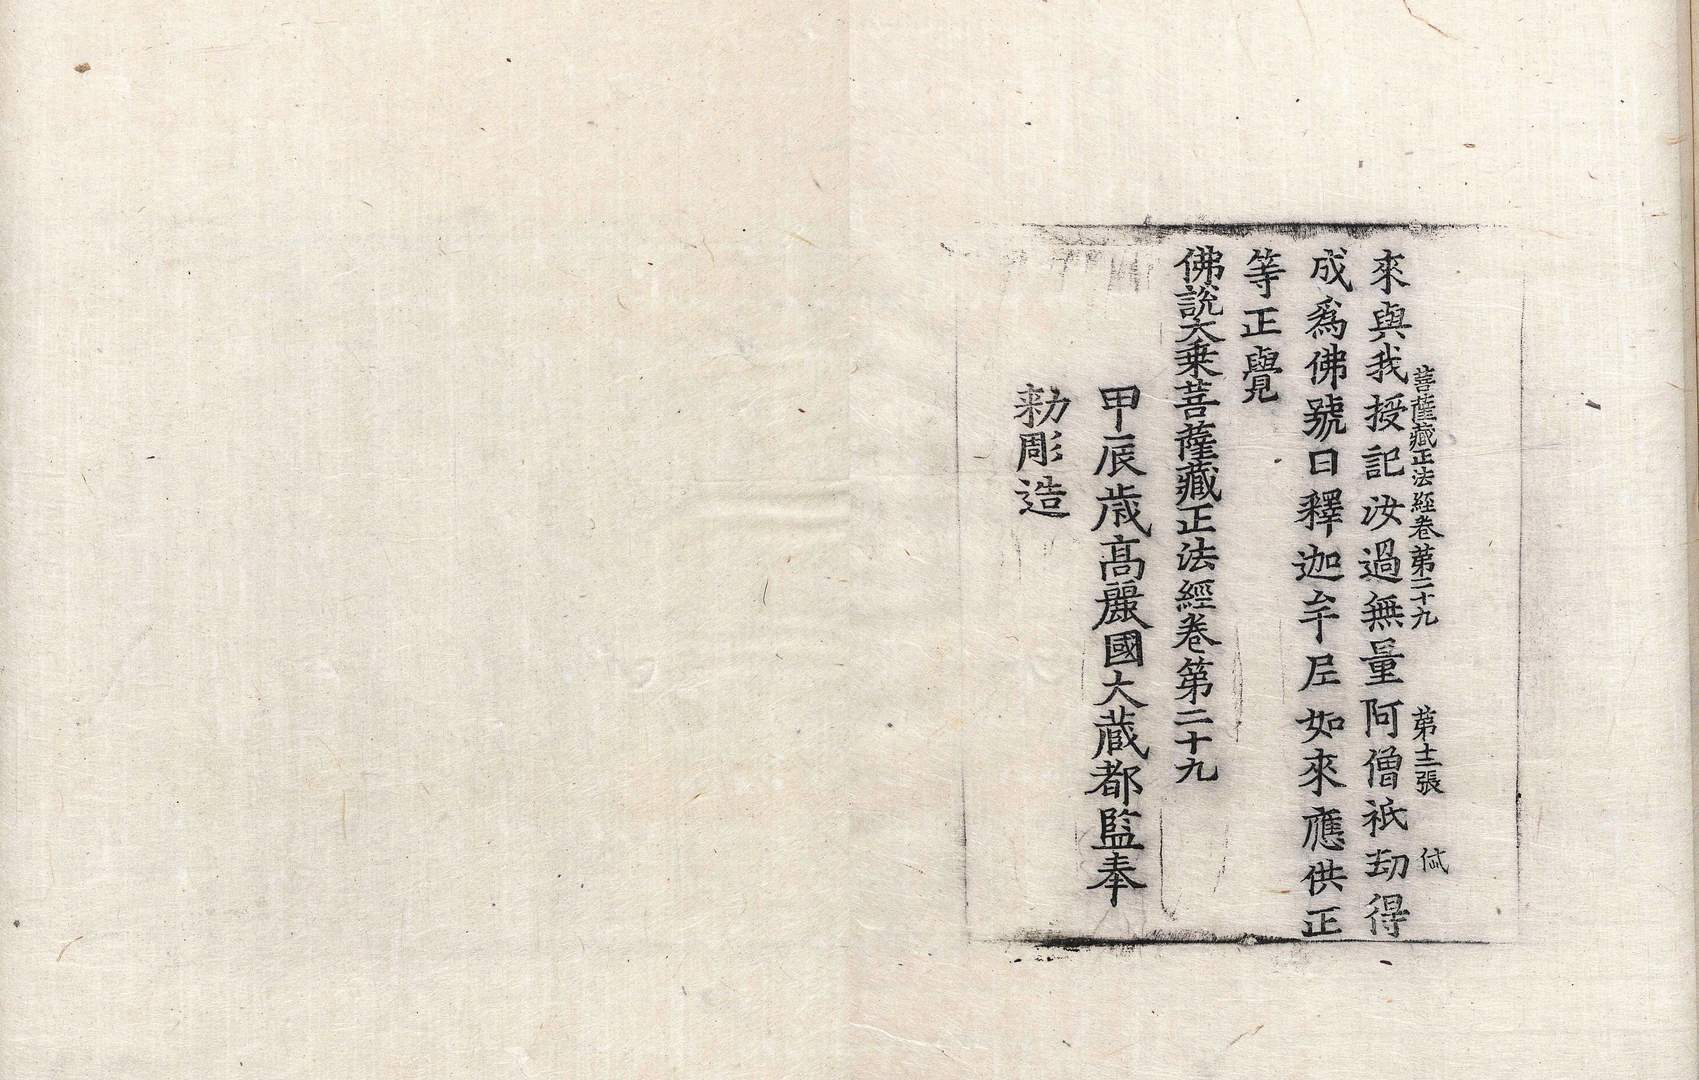 菩薩藏正法經卷第二十九 第十二張
來與我授記汝過無量阿僧祇劫得
成爲佛號曰釋迦牟尼如來應供正
等正覺
佛說大乗菩薩藏正法經卷第二十九
甲辰歳高麗國大蔵都監奉
勑彫造